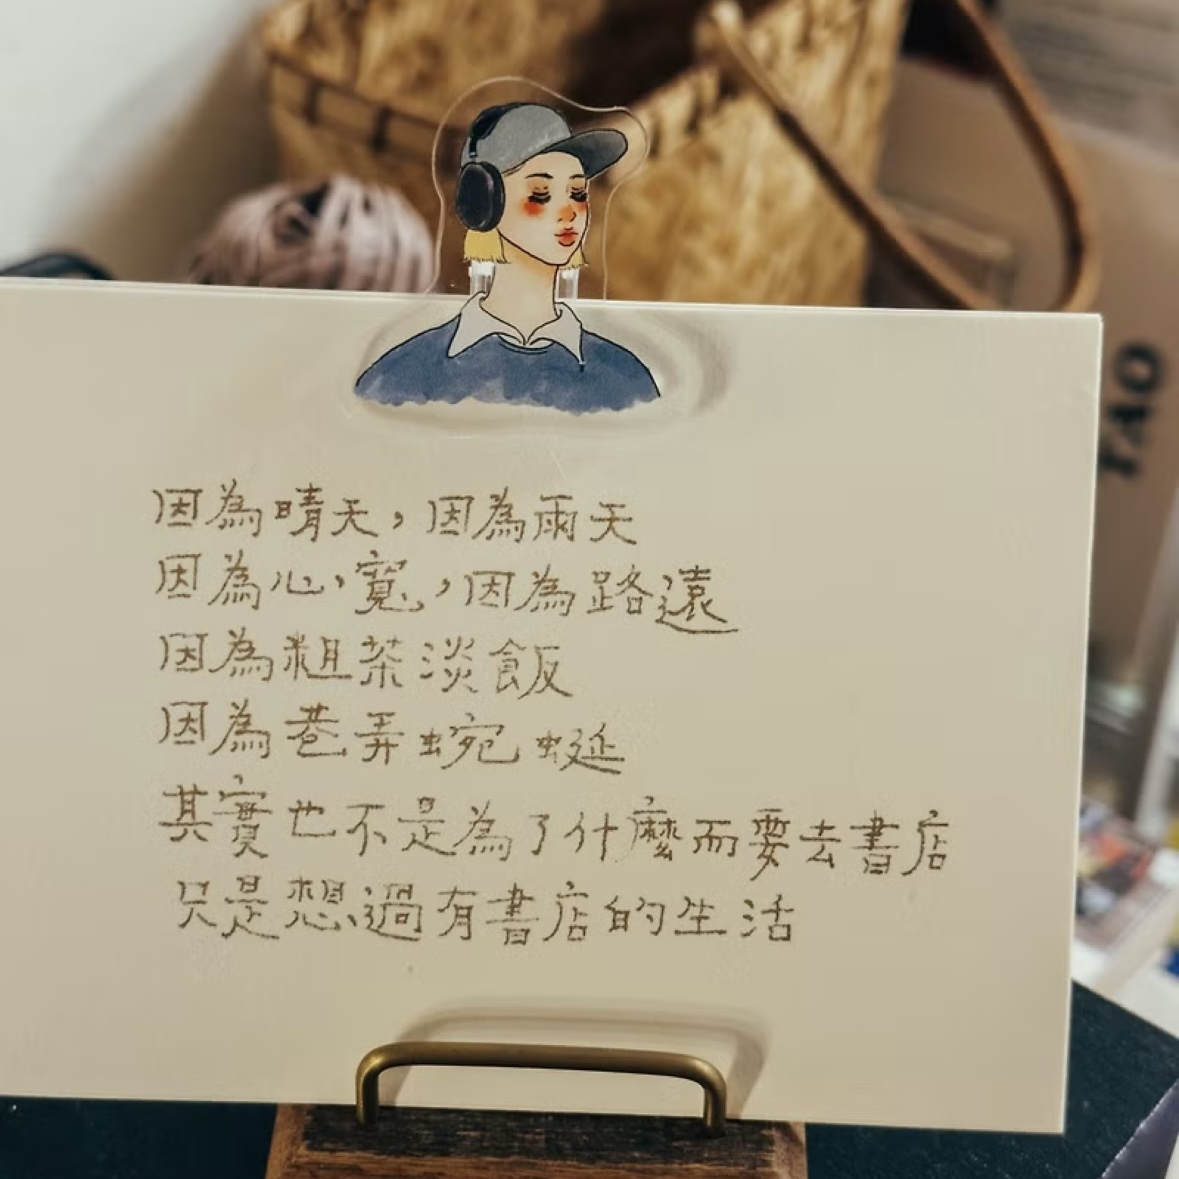 因為晴天，因為雨天
因為心寬，因為路遠
因為粗茶淡飯
因為巷弄蜿蜒
其實也不是為了什麼而要去書店
只是想過有書店的生活
TAO